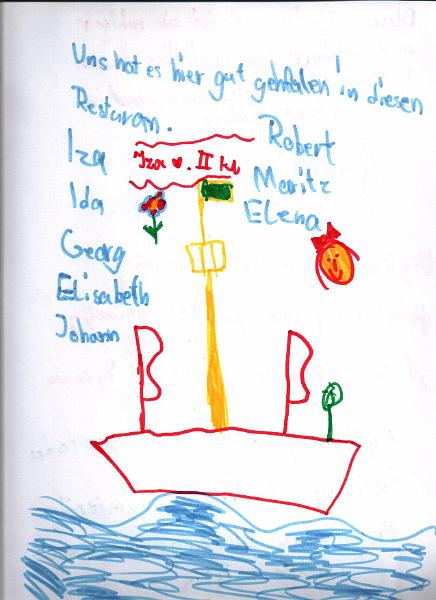 Uns hat es hier gut gehfalen in diesen
Resturan.
Iza
Robert
Iza ♥. II kl
Ida
Moritz
Elena
Georg
Elisabeth
Johann